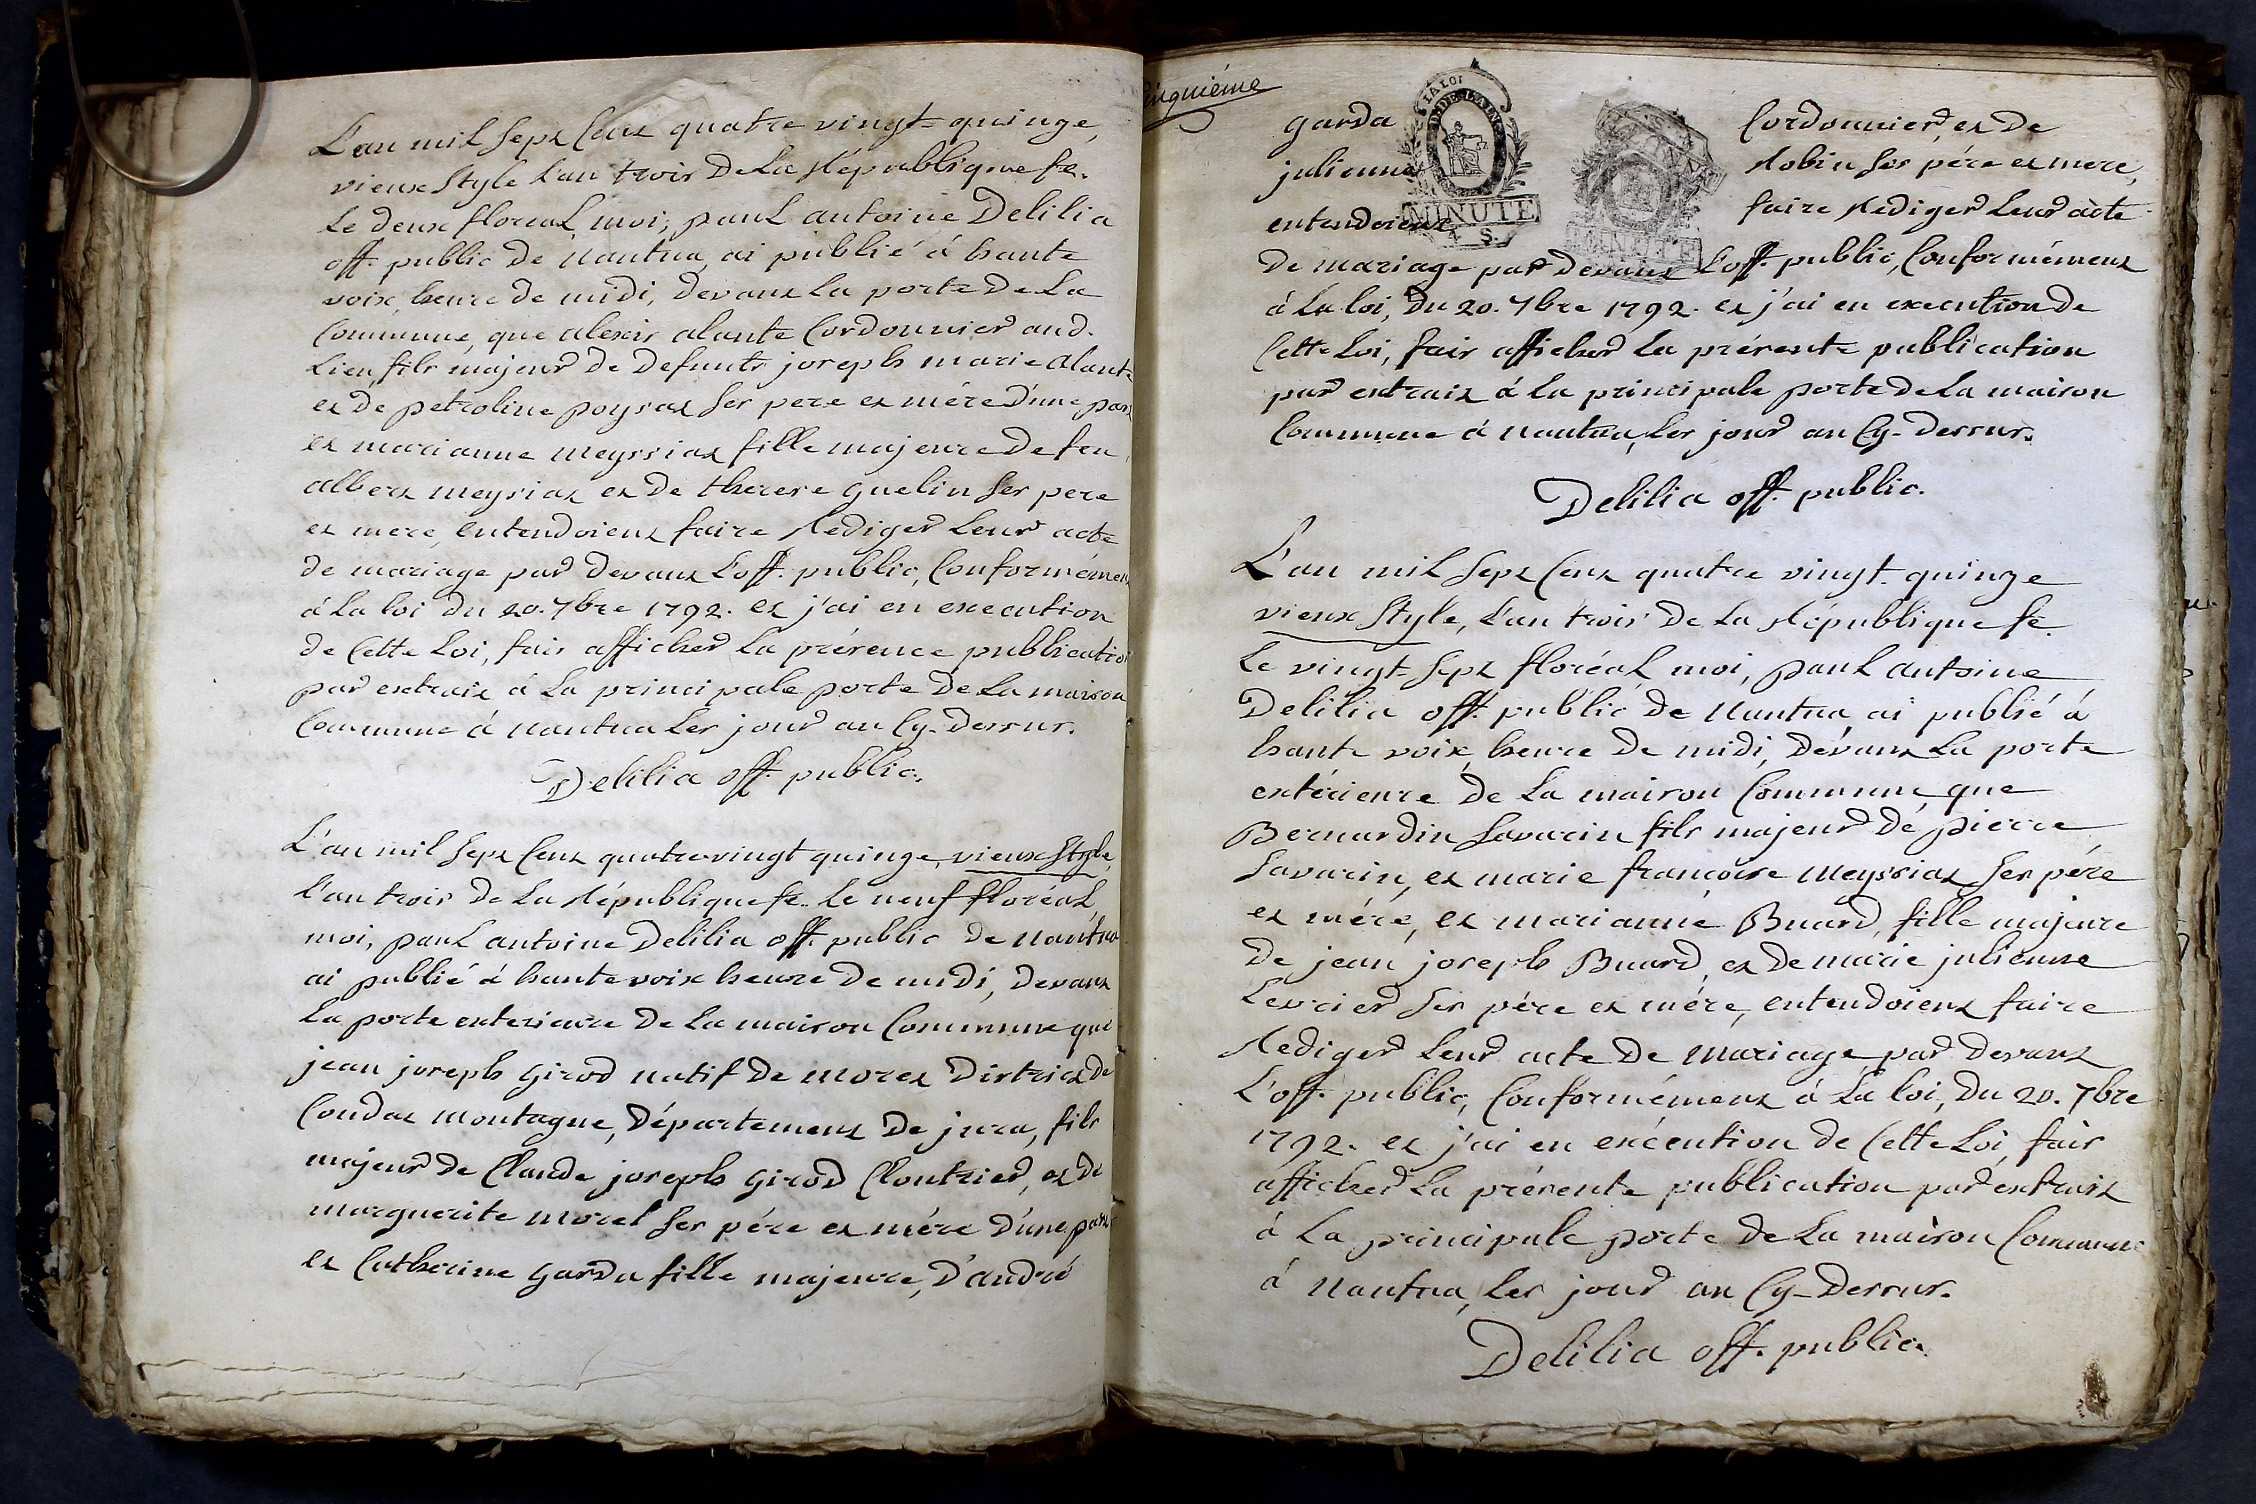 L'an mil sept Cent quatre vingt-quinze,
vieux Style L'an trois De La République fe.
Le deux floreal, moi, paul antoine Delilia
off. public De Nantua, ai publié à haute
voix, heure de midi, Devant La porte De La
Commune, que alexis alante Cordonnier aud.
Lieu fils majeur de Defunts joseph marie alante
et De petroline poysat Ses pere et mére D'une part
et marianne meyssiat fille majeure De feu
albert meysiat et De therese guelin Ses pere
et mere, entendoient faire Rediger Leur acte
de mariage par Devant L'off. public, Conformément
à La loi du 20. 7bre 1792. et j'ai en execution
de Cette Loi, fait afficher La présente publication
par extrait à La principale porte De La maison
Commune à Nantua Les jour an Cy-Dessus.
Delilia off. public.
L'an mil Sept Cent quatrevingt quinze, vieux Style,
L'an trois de La République fe. Le neuf floréal,
moi, paul antoine Delilia off. public de Nantua
ai publié à haute voix heure De midi, Devant
La porte exterieure De La maison Commune que
jean joseph Girod natif De Morez District de
Condat Montagne, Département De jura, fils
majeur De Claude joseph Girod Cloutrier, et De
marguerite morel Ses pére et mére D'une part
et Catherine Garda fille majeure, D'andré
cinquiéme
LA LOI
MINUTE
4 S.
garda Cordonnier, et De
julienne Robin Ses pére et mere,
entendoient faire Rediger Leur acte
De mariage par Devant L'off. public, Conformément
à La loi, Du 20. 7bre 1792. et j'ai en execution De
Cette Loi, fait afficher La présente publication
par extrait à La principale porte De La maison
Commune à Nantua, Les jour an Cy-Dessus.
Delilia off. public.
L'an mil Sept Cent quatre vingt-quinze
vieux Style, L'an trois De La République fe.
Le vingt-Sept floréal moi, paul antoine
Delilia off. public de Nantua, ai publié à
haute voix, heure De midi, Dévant La porte
extérieure De La maison Commune que
Bernardin Savarin fils majeur De pierre
Savarin, et marie françoise Meyssiat Ses pére
et mére, et marianne Buard, fille majeure
De jean joseph Buard, et De marie julienne
Levrier Ses pére et mére, entendoient faire
Rediger Leur acte De mariage par Devant
L'off. public, Conformément à La loi, Du 20. 7bre
1792. et j'ai en exécution De Cette Loi, fait
afficher La présente publication par extrait
à La principale porte De La maison Commune
à Nantua, Les jour an Cy-Dessus.
Delilia off. public.